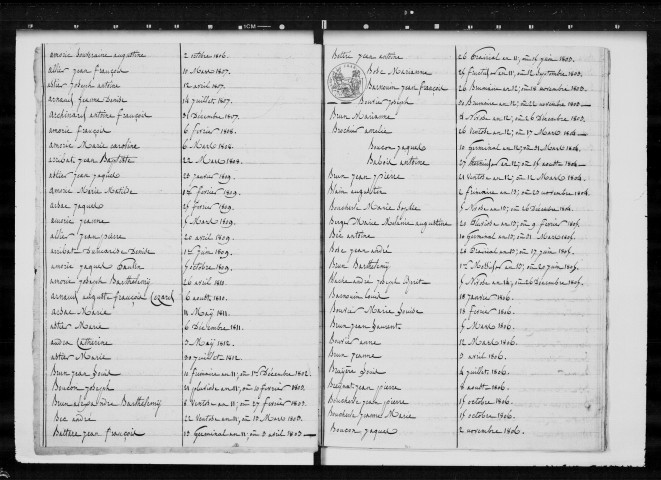 amorie Souveraine augustine 2 octobre 1806.
allier jean françois 10 Mars 1807.
astier joseph antoine 12 avril 1807.
arnaud jeanne Denise 14 juillet 1807.
archinard antoine françois 31 Décembre 1807.
amorie françois 6 février 1808.
amorie Marie caroline 6 Mars 1808.
arribat jean Baptiste 22 Mars 1808.
astier jean jaques 20 janvier 1809.
amorie Marie Matilde 12 février 1809.
arbac jaques 25 février 1809.
amorie jeanne 5 Mars 1809.
allier jean pierre 20 avril 1809.
arribat Denise 12 juin 1809.
amorie jaques Paulin 7 octobre 1809.
amorie joseph Barthelemy 26 avril 1810.
arnaud auguste françois Cezard 6 aoust 1810.
arbac Marie 11 Maij 1811.
astier Marie 6 Décembre 1811.
audra Catherine 5 Maij 1812.
astier Marie 30 juillet 1812.
Brun jean Louis 11 frimaire an 11; ou 2 Décembre 1802.
Boucon joseph 21 pluviose an 11; ou 10 février 1803.
Brun alexandre Barthelemy 8 Ventose an 11; ou 27 février 1803.
Bec andré 22 Ventose an 11; ou 13 Mars 1803.
Battare jean françois 13 Germinal an 11; ou 3 avril 1803
Bettri jean antoine 26 Prairial an 11; ou 15 juin 1803.
Bose Marianne 25 fructid. an 11; ou 12 Septembre 1803.
Barnouin jean françois 26 Brumaire an 12; ou 18 novembre 1803.
Bouvier joseph 30 Brumaire an 12; ou 22 novembre 1803
Brun Marianne 4 Nivose an 12; ou 26 Décembre 1803.
Brochier amelie 26 Ventose an 12; ou 17 Mars 1804.
Boucon jaques 10 germinal an 12; ou 31 Mars 1804.
antoine 27 thermidor an 12; ou 15 aoust 1804.
Brun jean pierre 21 Ventose an 12; ou 12 Mars 1804.
Blain augustin 2 frimaire an 13; ou 23 novembre 1804.
Boucherle Marie 5 Nivose an 13; ou 26 Décembre 1804.
Berge Marie Melanie augustine 20 Pluviose an 13; ou 9 février 1805.
Bec antoine 10 germinal an 13; ou 31 Mars 1805.
Bose jean andré 28 Prairial an 13; ou 17 juin 1805.
Brun Barthelemy 1er Messidor an 13; ou 20 juin 1805.
andré joseph 5 Nivose an 14; ou 26 Décembre 1805.
Barnouin Louis 18 janvier 1806.
Bouvier Marie Louise 18 février 1806.
Brun jean Laurent 5 Mars 1806.
Bouvier anne 12 Mars 1806.
Brun jeanne 3 avril 1806.
Bruyère Louis 4 juillet 1806.
jean pierre 8 aoust 1806.
Boucherle jean pierre 15 octobre 1806.
Boucherle jeanne Marie 15 octobre 1806.
Boucon jaques 2 novembre 1806.